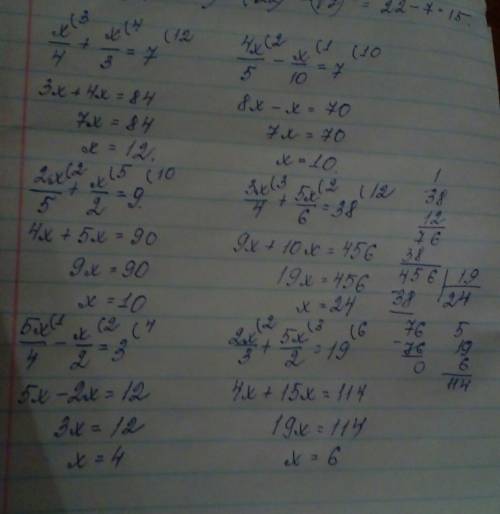 = 22 - 7 = 15.
x/4 (3 + x/3 (4 = 7 (12
3x + 4x = 84
7x = 84
x = 12.
4x/5 (2 - x/10 (1 = 7 (10
8x - x = 70
7x = 70
x = 10.
2x/5 (2 + x/2 (5 = 9. (10
4x + 5x = 90
9x = 90
x = 10
3x/4 (3 + 5x/6 (2 = 38 (12
9x + 10x = 456
19x = 456
x = 24
1
38
12
76
38
456 | 19
38 24
76
- 76
0
5
19
6
114
5x/4 (1 - x/2 (2 = 3 (4
5x - 2x = 12
3x = 12
x = 4
2x/3 (2 + 5x/2 (3 = 19 (6
4x + 15x = 114
19x = 114
x = 6